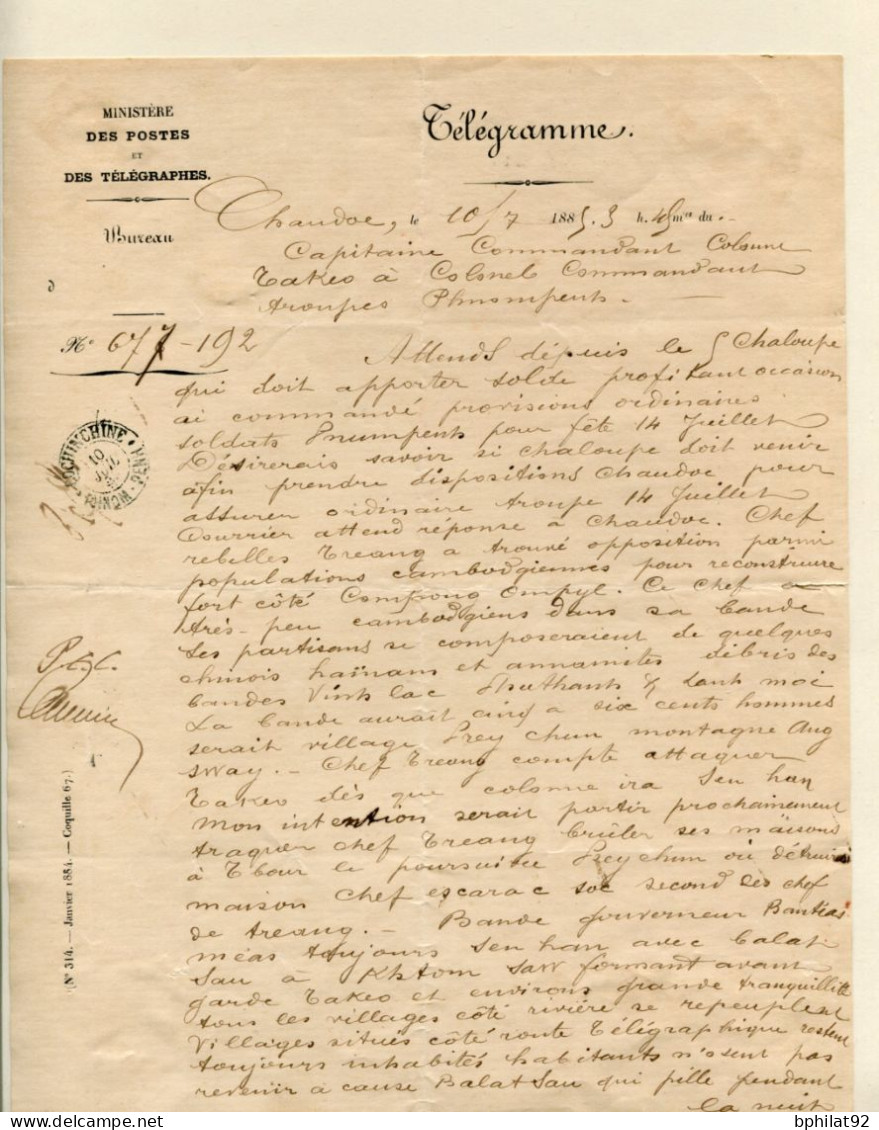 MINISTÈRE
DES POSTES
ET
DES TÉLÉGRAPHES.
Bureau
d
Télégramme.
Chaudoc, le 10/7 1885. 3 h. 45 mes du.
Capitaine Commandant Colonne
Takeo à Colonel Commandant
troupes Phnompenh.
No 677-192
Attends depuis le 5 Chaloupe
qui doit apporter solde profitant occasion
ai commandé provisions ordinaires
soldats Pnumpenh pour fête 14 Juillet
Désirerais savoir si chaloupe doit venir
afin prendre dispositions Chaudoc pour
assurer ordinaire troupe 14 Juillet
Courrier attend réponse à Chaudoc. Chef
rebelles Treang a trouvé opposition parmi
populations cambodgiennes pour reconstruire
fort côté Compong Ompyl. Ce chef a
très-peu cambodgiens dans sa bande
Ses partisans se composeraient de quelques
chinois haïnams et annamites débris des
bandes Vinh lac
La bande aurait cinq a six cents hommes
serait village Prey chum montagne Ang
sway. - Chef Treang compte attaquer
Takeo dès que colonne ira Sen han
Mon intention serait partir prochainement
traquer chef Treang brûler ses maisons
à Tbour le poursuivre Preychum où détruirai
maison chef escarac soc second des chef
de treang. - Bande gouverneur Bantéas
méas toujours Senhan avec balat
Sau à Khtom Saw formant avant
garde Takeo et environs grande tranquillité
tous les villages côté rivière se repeuplent
Villages situés côté route Télégraphique restent
toujours inhabités habitants n'osent pas
revenir à cause Balat Sau qui pille pendant
la nuit
COCHINCHINE
10
JUIL
PNOM-PENH
N° 314. — Janvier 1884. — Coquille 67.)
bphilat92